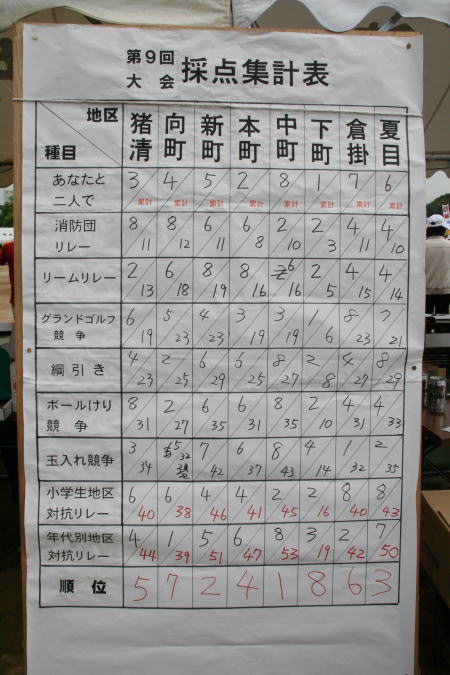 第9回
大会 採点集計表
地区 猪清 向町 新町 本町 中町 下町 倉掛 夏目
種目
あなたと 3 4 5 2 8 1 7 6
二人で 累計 累計 累計 累計 累計 累計 累計 累計
消防団 8 8 6 6 2 2 4 4
リレー 11 12 11 8 10 3 11 10
リームリレー 2 6 8 8 6 2 4 4
13 18 19 16 16 5 15 14
グランドゴルフ 6 5 4 3 3 1 8 7
競争 19 23 23 19 19 6 23 21
綱引き 4 2 6 6 8 2 4 8
23 25 29 25 27 8 27 29
ボールけり 8 2 6 6 8 2 4 4
競争 31 27 35 31 35 10 31 33
玉入れ競争 3 5 7 6 8 4 1 2
34 32 42 37 43 14 32 35
小学生地区 6 6 4 4 2 2 8 8
対抗リレー 40 38 46 41 45 16 40 43
年代別地区 4 1 5 6 8 3 2 7
対抗リレー 44 39 51 47 53 19 42 50
順位 5 7 2 4 1 8 6 3